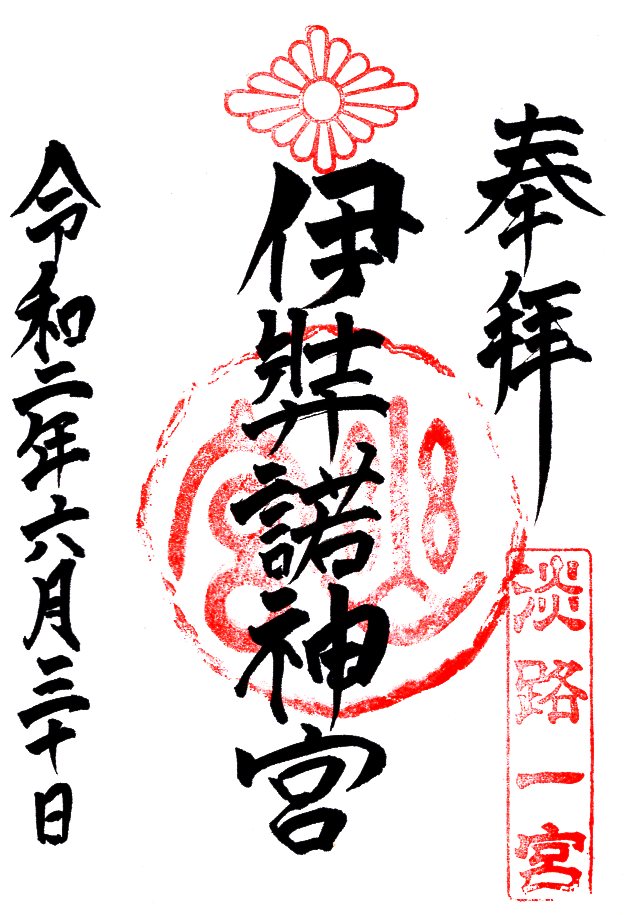 奉拝
淡路一宮
伊弉諾神宮
令和二年六月三十日